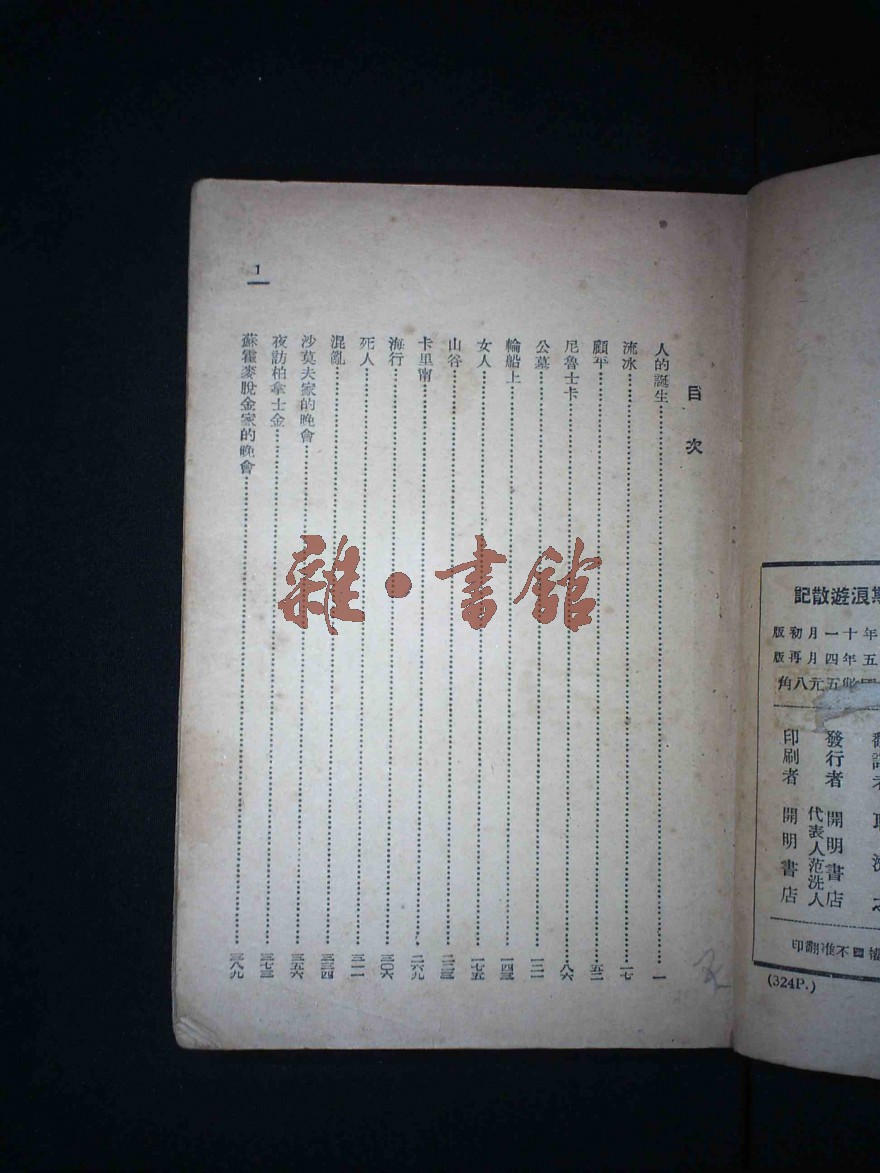 目次
人的誕生……一
流冰……一七
顧平……五二
尼魯士卡……八六
公墓……
輪船上……一四三
女人……一七五
山谷……
卡里甯……二六九
海行……三〇六
死人……三一一
混亂……三三四
沙莫夫家的晚會……三五六
夜訪柏拿士金……三七三
蘇霍麥脫金家的晚會……三八九
1
雜·書館
浪遊散記
年十一月初版
五年四月再版
五元八角
發行者 開明書店
代表人范洗人
印刷者 開明書店
不准翻印
(324P.)